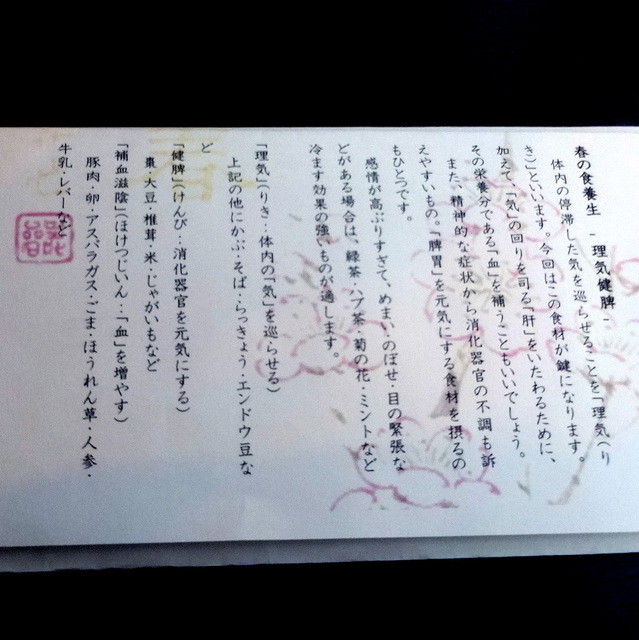 春の食養生 - 理気健脾 -
体内の停滞した気を巡らせることを「理気(り
き)」といいます。今回はこの食材が鍵になります。
加えて、「気」の回りを司る「肝」をいたわるために、
その栄養分である「血」を補うこともいいでしょう。
また、精神的な症状から消化器官の不調も訴
えやすいもの。「脾胃」を元気にする食材を摂るの
もひとつです。
感情が高ぶりすぎて、めまい・のぼせ・目の緊張な
どがある場合は、緑茶・ハブ茶・菊の花・ミントなど
冷ます効果の強いものが適します。
「理気」(りき‥体内の「気」を巡らせる)
上記の他にかぶ・そば・らっきょう・エンドウ豆な
ど
「健脾」(けんぴ‥消化器官を元気にする)
棗・大豆・椎茸・米・じゃがいもなど
「補血滋陰」(ほけつじいん‥「血」を増やす)
豚肉・卵・アスパラガス・ごま・ほうれん草・人参・
牛乳・レバーなど
春